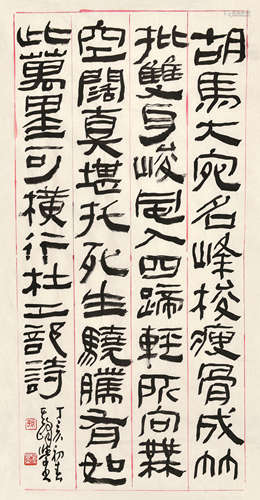 胡馬大宛名峰棱瘦骨成竹
批雙耳峻風入四蹄輕所向無
空闊真堪托死生驍騰有如
此萬里可橫行杜工部詩
丁亥初春